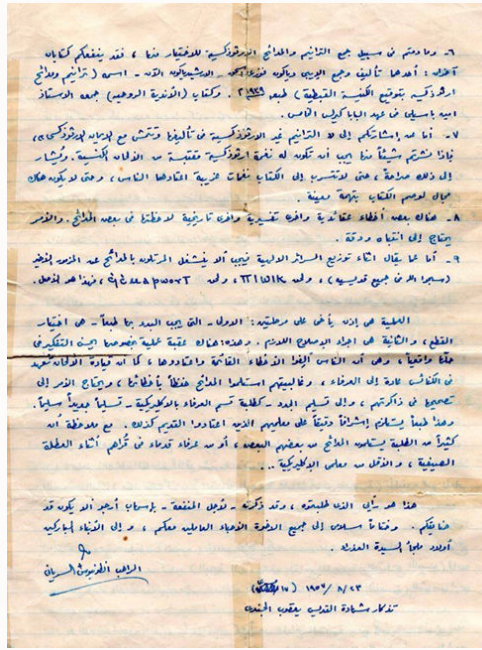 ٦- وما دمتم فى سبيل جمع الترانيم والمدائح الأرثوذكسية للاختيار منها ، فقد ينفعكم كتابان
آخران : أحدهما تأليف وجمع الايبى وباكون - الارشيدياكون الآن - اسمه ( ترانيم ومدائح
ارثوذكسية بتوقيع الكنيسة القبطية ) طبعه . وكتاب ( الأغذية الروحية ) جمعه الاستاذ
امين باسيلى فى عهد البابا كيرلس الخامس .
٧- أما عن إشارتكم إلى الترانيم غير الارثوذكسية فى تأليفها وتتمشى مع الإيمان الارثوذكسى ،
فإذا نشرتم شيئاً منها يجب أن تكون له نغمة ارثوذكسية مقتبسة من الألحان الكنسية . ويُشار
إلى ذلك صراحةً ، حتى لا تتسرب إلى الكتاب نغمات غريبة اعتادها الناس ، وحتى لا يكون هناك
مجال لوصم الكتاب بتهمة معينة .
٨- هناك بعض أخطاء عقائدية وأخرى تفسيرية وأخرى تاريخية لاحظتها فى بعض المدائح . والأمر
يحتاج إلى انتباه ودقة .
٩- أما عما يقال اثناء توزيع السرائر الالهية فيجب ألا ينشغل المرتلون بالمدائح عن المزمور
( سبحوا الله فى جميع قديسيه ) ، ولحن ، ولحن ، فهذا هو الأصل .
العملية هى إذن يا أخى على مرحلتين : الأولى - التى يجب البدء بها طبعاً - هى اختيار
القطع ، والثانية هى اجراء الإصلاح اللازم . وهذه هناك عقبة عملية خصوصاً يجب التفكير فى
حلها واقعياً ، وهى أن الناس ألفوا الأخطاء القائمة واعتادوها ، كما أن قيادة الألحان تعهد
فى الكنائس عادة إلى العرفاء ، وغالبيتهم استلموا المدائح حفظاً بأخطائها ، ويحتاج الأمر إلى
تصحيحها فى ذاكرتهم ، وإلى تسليم الجدد - كطلبة قسم العرفاء بالاكليريكية - تسليماً جديداً سليماً .
وهذا طبعاً يستلزم إشرافاً دقيقاً على معلميهم الذين اعتادوا القديم كذلك . مع ملاحظة أن
كثيراً من الطلبة يستلمون المدائح من بعضهم البعض ، أو من عرفاء قدماء فى قراهم أثناء العطلة
الصيفية ، والأقل من معلمى الاكليريكية ...
هذا هو رأيى الذى طلبتموه ، وقد ذكرته - لأجل المنفعة - بإسهاب أرجو ألا يكون قد
ضايقكم . وختاماً سلامى إلى جميع الاخوة الأحباء العاملين معكم ، وإلى الأبناء المباركين
أولاد ملجأ السيدة العذراء .
الراهب انطونيوس السريانى
٢٣ / ٨ / ١٩٥٦ ( ١٧ )
تذكار شهادة القديس يعقوب الجندى